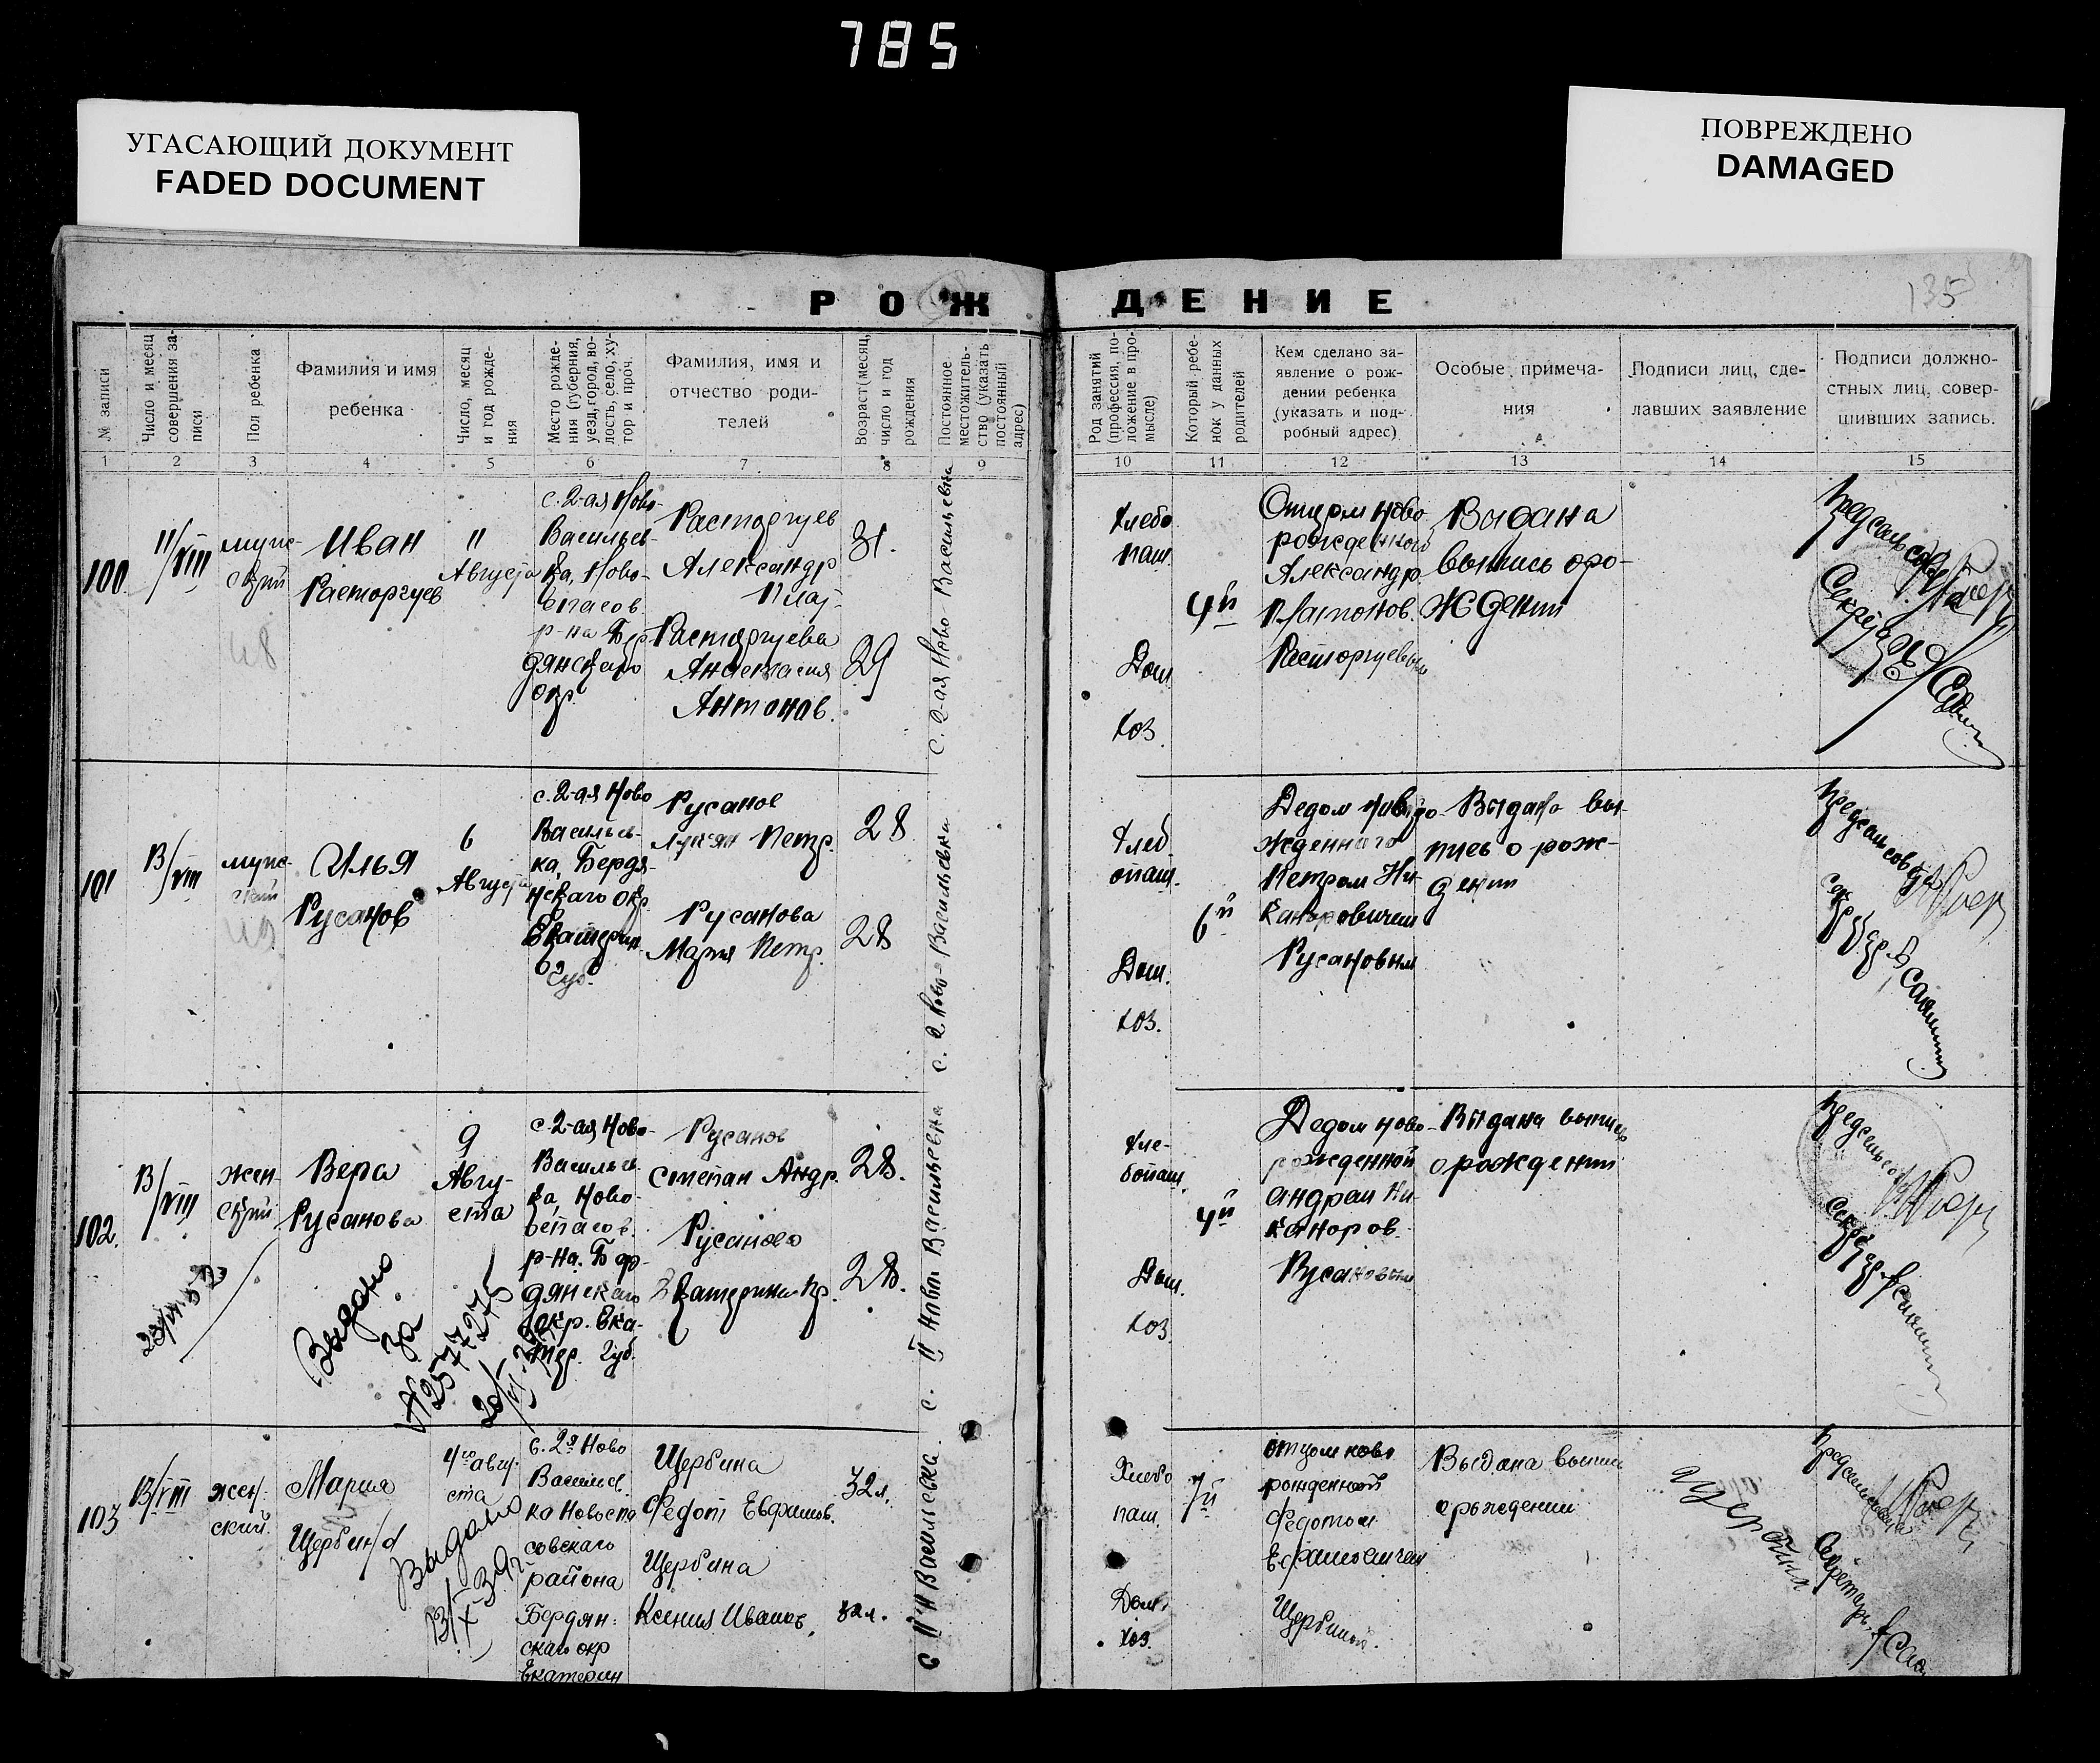 785
УГАСАЮЩИЙ ДОКУМЕНТ
FADED DOCUMENT
ПОВРЕЖДЕНО
DAMAGED
РОЖДЕНИЕ
135
№ записи
Число и месяц совершения записи
Пол ребенка
Фамилия и имя
ребенка
Число, месяц
и год рожде-
ния
Место рожде-
ния (губерния,
уезд, город, во-
лость, село, ху-
тор и проч.
Фамилия, имя и
отчество роди-
телей
Возраст (месяц,
число и год
рождения
Постоянное
местожитель-
ство (указать
постоянный
адрес)
Род занятий
(профессия, по-
ложение в про-
мысле)
Который ребе-
нок у данных
родителей
Кем сделано за-
явление о рож-
дении ребенка
(указать и под-
робный адрес)
Особые примеча-
ния
Подписи лиц, сде-
лавших заявление
Подписи должно-
стных лиц, совер-
шивших запись.
1 2 3 4 5 6 7 8 9 10 11 12 13 14 15
100
11/VIII
мужс-
кий
48
Иван
Расторгуев
11
Августа
с. 2-ая Ново-
Васильев-
ка, Ново-
спасов.
р-на Бер
дянскаго
окр.
Расторгуев
Александр
Плат.
Расторгуева
Анастасия
Антонов.
31.
29
с. 2-ая Ново-Васильевка
Хлебо
паш.
Дом.
хоз.
4й
Отцом ново
рожденного
Александр
Платонов.
Расторгуевым
Выдана
выпись о ро-
ждении
Предсельсовета
Секретарь
101
13/VIII
мужс-
кий
49
Илья
Русанов
6
Августа
с. 2-ая Ново
Васильев-
ка, Бердя-
нскаго окр.
Екатерин.
Губ.
Русанов
Петр.
Русанова
Мария Петр.
28
28
с. 2 Ново-Васильевка
Хлеб
опаш.
Дом.
хоз.
6й
Дедом новоро-
жденного
Петром Ни-
каноровичем
Русановым
Выдана вы-
пись о рож-
дении
Предсельсовета
102.
13/VIII
жен-
ский
Вера
Русанова
9
Авгу-
ста
с. 2-ая Ново-
Васильев-
ка, Ново-
спасов.
р-на. Бер-
дянскаго
окр. Ека-
тер. Губ.
Русанов
Степан Андр.
Русанова
Екатерина Гр.
28.
28.
с. II Ново Васильевка
Выдано
за
№ 2577275
Хле-
бопаш.
Дом.
хоз.
4й
Дедом ново-
рожденной
Андреем Ни-
каноров.
Русановым
Выдана выпись
о рождении
Предсельсовета
103
13/VIII
жен-
ский.
Мария
Щербина
4го авгу-
ста
Выдано
с. 2я Ново
Васильев.
ка Новоспа
совскаго
района
Бердян-
скаго окр
Екатерин
Щербина
Федот Евфимов.
Щербина
Ксения Иванов.
32 л.
32 л.
с. IIя Васильевка
Хлебо
паш.
Дом.
хоз.
7й
отцом ново
рожденной
Федотом
Ефимовичем
Щербиной.
Выдана выпись
о рождении
Щербина
Предсельсовета
Секретарь